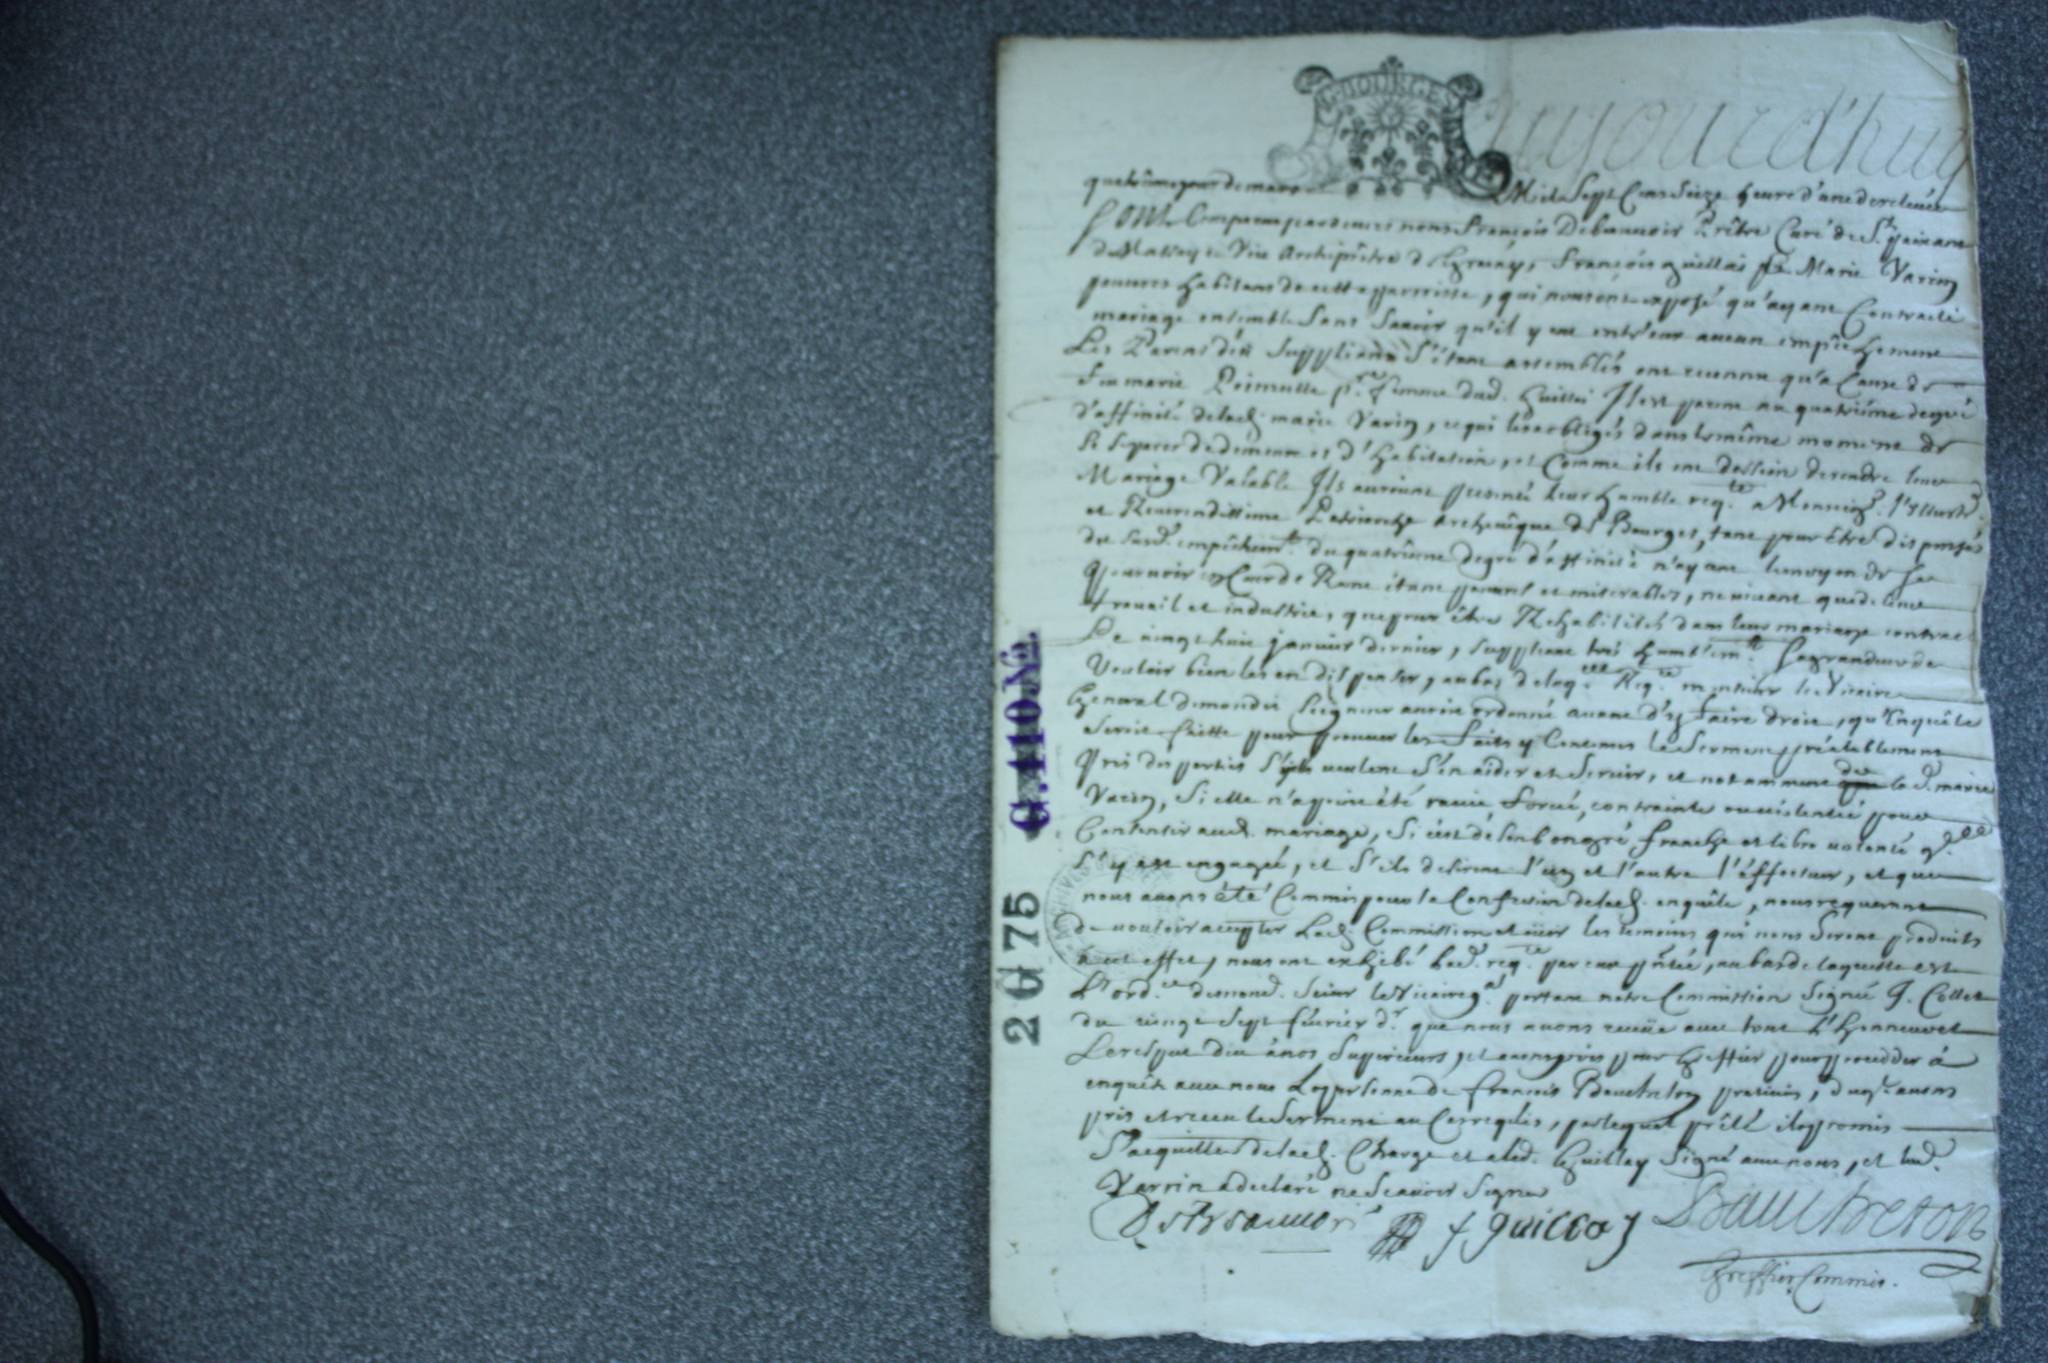 G. BOURGES
Aujourd'huy
quatriême jour de mars Mil Sept Cens Seize heure d'une de relevée
Sont Comparu pardevant nous François Prêtre Curé de St. paixant
de Massay Vice Archiprêtre d' François guillai & Marie Varin
pauvres habitans de cette parroisse, qui nous ont exposé qu'ayant Contracté
mariage ensemble Sans Scavoir qu'il y eut entr'eux aucun empêchement
Les Parens des Supplians S'étant assemblés ont reconnu qu'a Cause de
feu marie pr. femme dud. Guillai Il est parent au quatriême degré
d'affinité de lad. marie Varin, ce qui les a obligés dans le même moment de
Se Separer de demeure et d'habitation, et Comme ils ont dessein de rendre leur
Mariage Valable Ils auroient presenté leur humble reqte. a Monseigr. l'Illustre.
et Reverendissime Patriarche Archevêque de Bourges, tant pour être dispensés
du susd. empêchemt. du quatriême degré d'affinité n'ayant le moyen de Se
pourvoir en Cour de Rome étant pauvres et miserables, ne vivant que de leur
travail et industrie, que pour être Rehabilités dans leur mariage contracté
Le vingt huit janvier dernier, Suppliant trés humblemt. Sa grandeur de
Vouloir bien les en dispenser, au bas de laqelle. Reqte. monsieur le Vicaire
General de mondit Seigneur auroit ordonné avant d'y faire droit, qu'Enquête
Seroit faitte pour prouver les faits y Contenus le Serment préalablement
Pris des parties S'ils veulent S'en aider et Servir, et notamment de la d. marie
Varin, Si elle n'a point été ravie, forcée, contrainte ou violentée pour
Consentir aud. mariage, Si c'est de Son bon gré franche et libre volonté qu'elle
S'y est engagée, et S'ils desirent l'un et l'autre l'effectuer, et que
nous avons été Commis pour la Confection de lad. enquête, nous requerant
de vouloir accepter Lad. Commission et ouir les temoins qui nous Seront produits
a cet effet, nous ont exhibé lad. reqte. par eux pñtée, au bas de laquelle est
L'ordce. de mond. Seieur le Vicaire gnal portant notre Commission Signée J. Collet
du vingt Sept fêvrier dr. que nous avons recüe avec tout L'honneur et
Le respect dû à nos Superieurs, et avons pris pour greffier pour proceder à
enquête avec nous La personne de François Bauchreton praticien, duql. avons
pris et receu le Serment au Cas requis, par lequel prêté il a promis
S'acquitter de lad. Charge et a led. Guillay Signé avec nous, et lad.
Varrin a declaré ne Scavoir Signer
f guillay Bauchreton
Greffier Commis.
G. 110 No.
2075
ARCHIVES